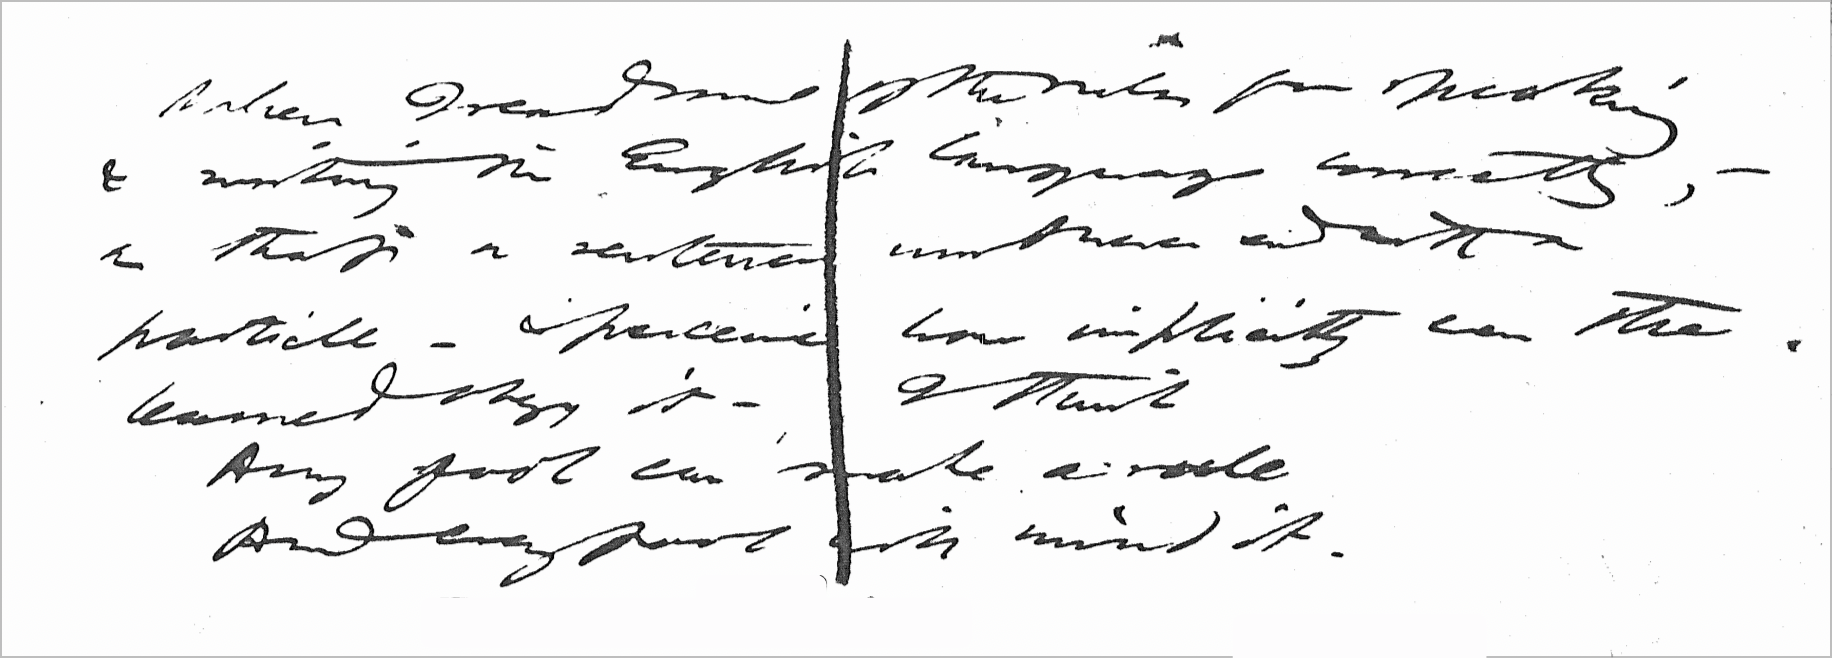 When I read some of the rules for speaking
& writing the English language correctly, –
as that a sentence must never end with a
particle – & perceive how implicitly even the
learned obey it – I think
Any fool can make a rule
And every fool will mind it.